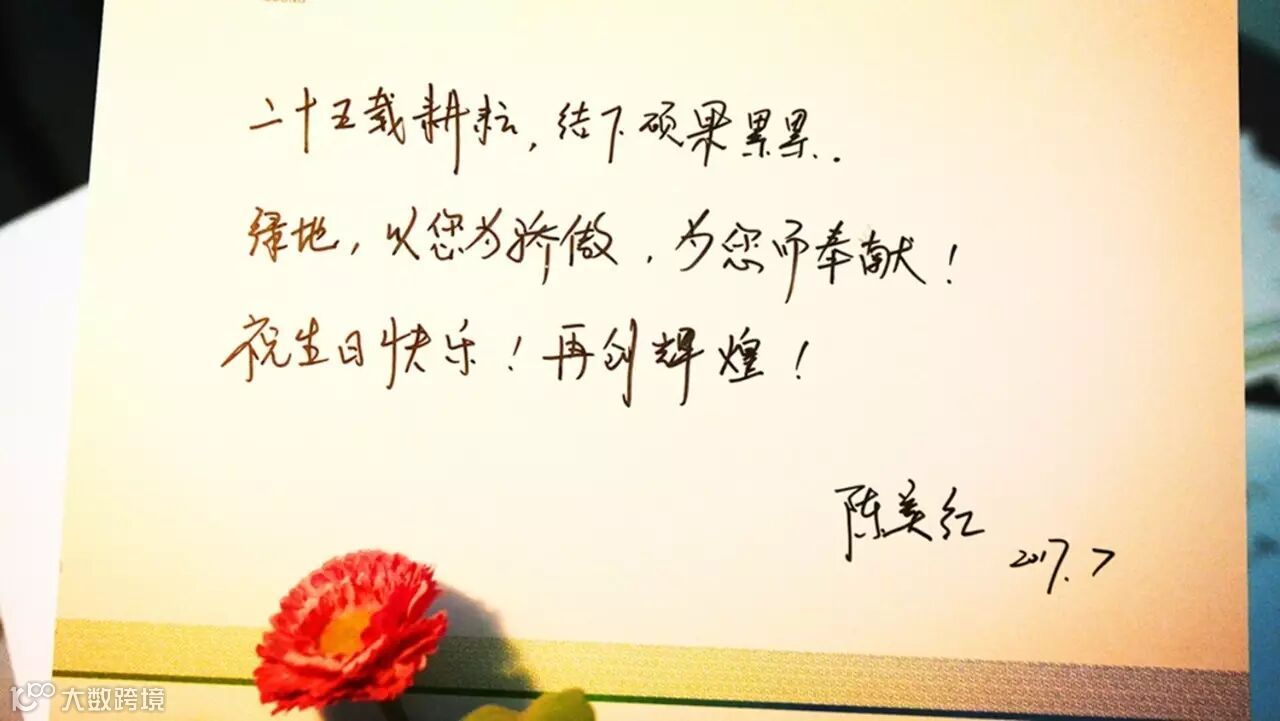 二十五载耕耘，结下硕果累累．
绿地，以您为骄傲，为您而奉献！
祝生日快乐！再创辉煌！
陈美红
2017.7
大数跨境